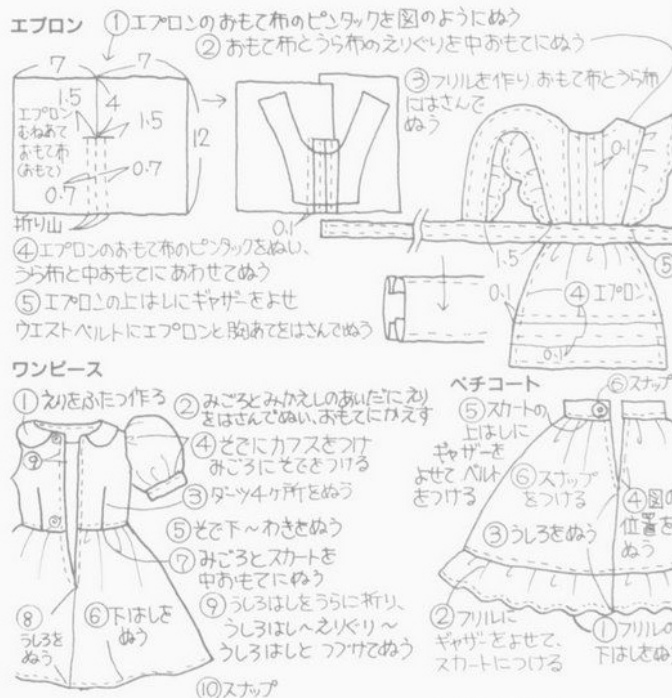 エプロン
①エプロンのおもて布のピンタックを図のようにぬう
②おもて布とうら布のえりぐりを中おもてにぬう
7
7
1.5
4
1
1.5
エプロン
むねあて
おもて布
(おもて)
12
0.7
0.7
折り山
0.1
③フリルを作り、おもて布とうら布
にはさんで
ぬう
0.1
1.5
⑤
④エプロンのおもて布のピンタックをぬい、
うら布と中おもてにあわせてぬう
⑤エプロンの上はしにギャザーをよせ
ウエストベルトにエプロンと胸あてをはさんでぬう
0.1
④エプロン
0.1
ワンピース
①えりをふたつ作る
②みごろとみかえしのあいだにえり
をはさんでぬい、おもてにかえす
④そでにカフスをつけ
みごろにそでをつける
⑨
③ダーツ4ヶ所をぬう
⑤そで下〜わきをぬう
⑦みごろとスカートを
中おもてにぬう
⑧
うしろを
ぬう
⑥下はしを
ぬう
⑨うしろはしをうらに折り、
うしろはし〜えりぐり〜
うしろはしとつづけてぬう
⑩スナップ
ペチコート
⑥スナップ
⑤スカートの
上はしに
ギャザーを
よせて、ベルト
をつける
⑥スナップ
をつける
④図の
位置を
ぬう
③うしろをぬう
②フリルに
ギャザーをよせて、
スカートにつける
①フリルの
下はしをぬ